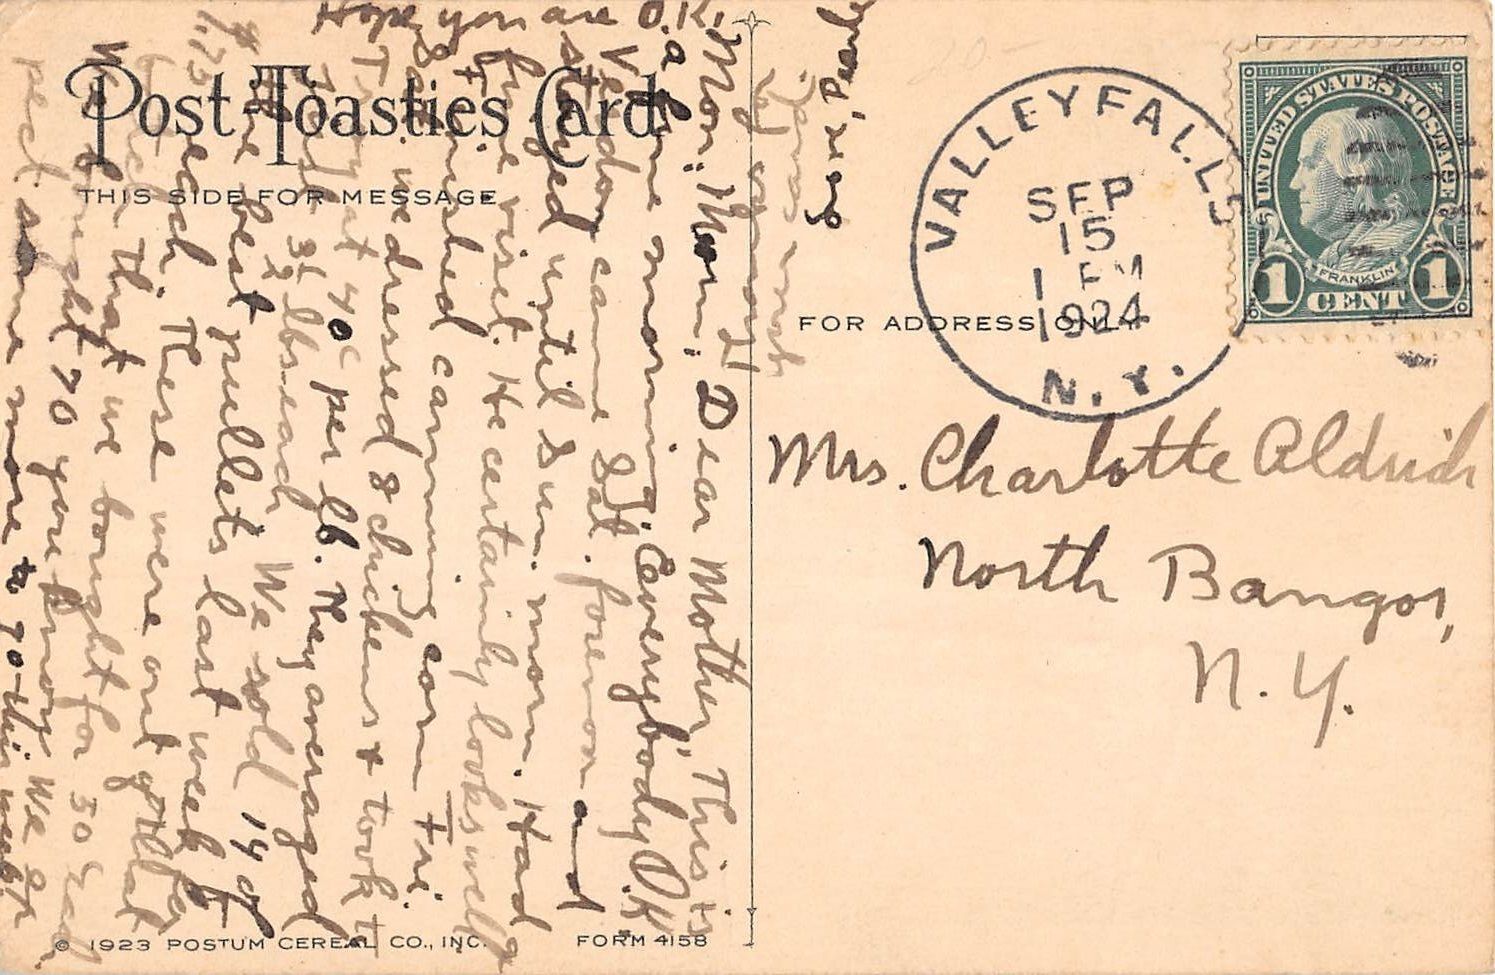 Post Toasties Card
THIS SIDE FOR MESSAGE
Mon. Morn. Dear Mother, This is
a fine morning. Everybody O.K.
Verdon came Sat. forenoon and
stayed until Sun. morn. Had
fine visit. He certainly looks well
+ finished canning corn Fri.
Sat. we dressed 8 chickens + took to
Troy at 40c per lb. They averaged
3½ lbs each We sold 14 of
the best pullets last week for
$1.75 each. These were out of
that we bought for 50 each
We bought 70 you know. We ex
pect some more to go this week.
Hope you are O.K.
Vern & Pearle
FOR ADDRESS ONLY
VALLEY FALLS
SEP
15
1 PM
1924
N.Y.
UNITED STATES POSTAGE
FRANKLIN
1 CENT 1
Mrs. Charlotte Aldrich
North Bangor,
N.Y.
© 1923 POSTUM CEREAL CO., INC. FORM 4158